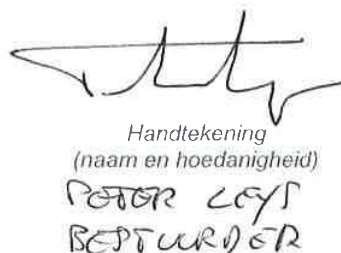 Handtekening
(naam en hoedanigheid)
PETER LEYS
BESTUURDER